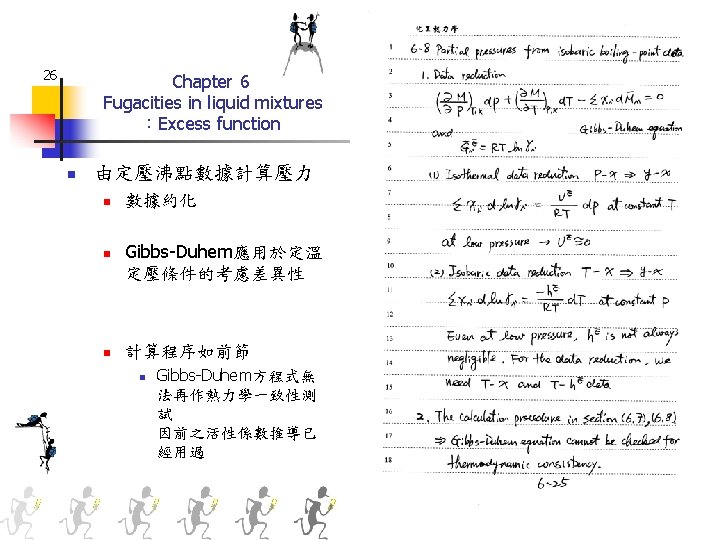 26
Chapter 6
Fugacities in liquid mixtures
：Excess function
由定壓沸點數據計算壓力
數據約化
Gibbs-Duhem應用於定溫
定壓條件的考慮差異性
計算程序如前節
Gibbs-Duhem方程式無
法再作熱力學一致性測
試
因前之活性係數推導已
經用過
化工熱力學
1 6-8 Partial pressures from isobaric boiling-point data
2 1. Data reduction
3 (∂M/∂P)T,x dp + (∂M/∂T)P,x dT - Σxi dM̄m = 0
4 and Gibbs-Duhem equation
5 ḠiE = RT ln γi
6 (1) Isothermal data reduction P-x ⇒ y-x
7
8 Σxi d ln γi = VE/RT dp at constant T
9 at low pressure → VE ≅ 0
10 (2) Isobaric data reduction T-x ⇒ y-x
11
12 Σxi d ln γi = -hE/RT² dT at constant P
13 Even at low pressure, hE is not always
14 negligible. For the data reduction, we
15 need T-x and T-hE data
16 2. The calculation procedure in section (6.7), (6.8)
17 ⇒ Gibbs-Duhem equation cannot be checked for
18 thermodynamic consistency.
6-25